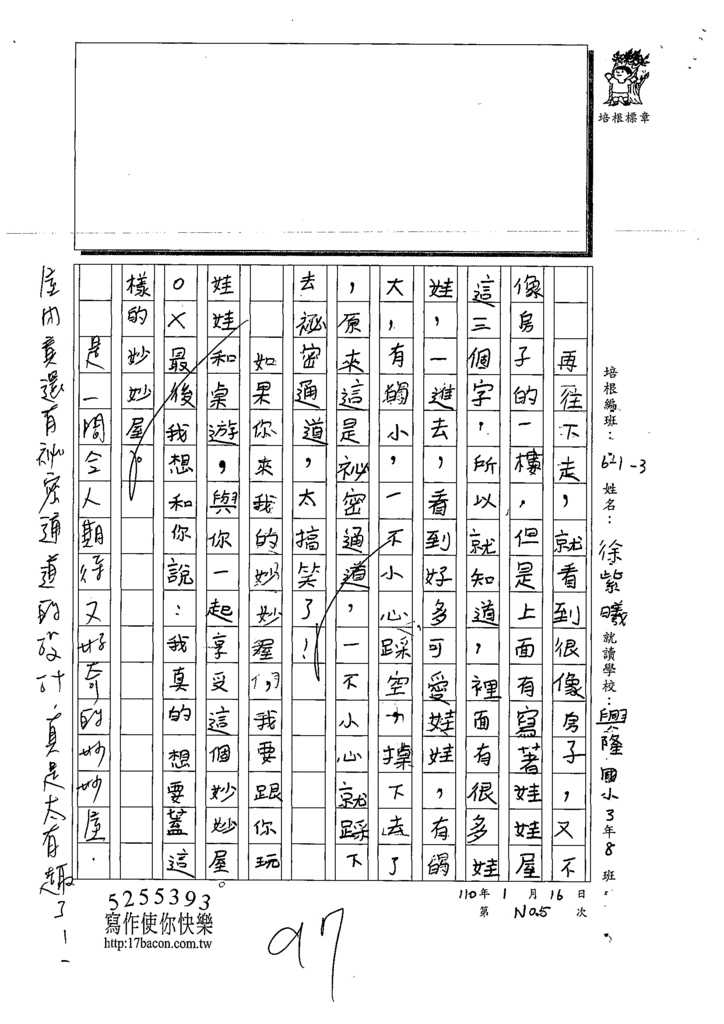 培根標章
培根編班：621-3 姓名：徐紫曦 就讀學校：興隆國小3年8班
110年1月16日
第No.5次
再往下走，就看到很像房子，又不
像房子的一樓，但是上面有寫著娃娃屋
這三個字，所以就知道，裡面有很多娃
娃，一進去，看到好多可愛娃娃，有的
大，有的小，一不小心踩空，掉下去了
，原來這是祕密通道，一不小心就踩下
去祕密通道，太搞笑了！
如果你來我的妙妙屋，我要跟你玩
娃娃和桌遊，與你一起享受這個妙妙屋。
最後我想和你說：我真的想要蓋這
樣的妙妙屋。
是一間令人期待又好奇的妙妙屋．
屋內竟還有祕密通道的設計，真是太有趣了！
5255393
寫作使你快樂
http:17bacon.com.tw
97